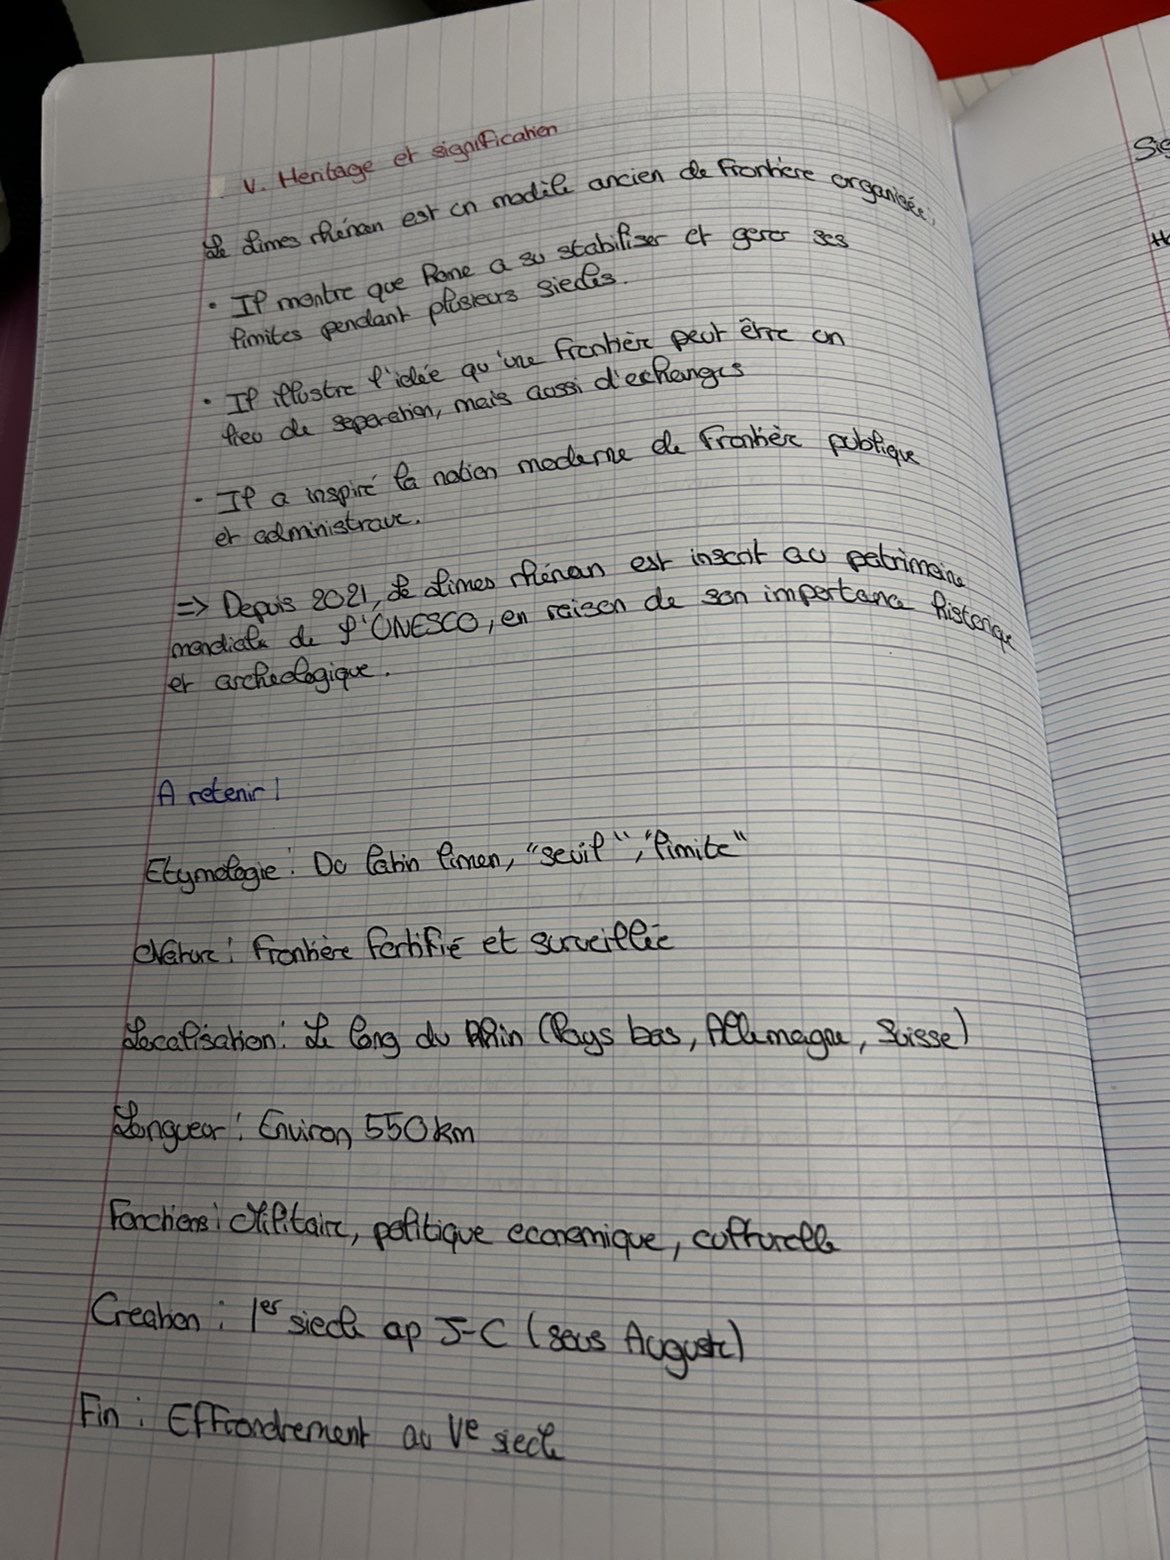 V. Heritage et signification
Le Limes rhénan est un modèle ancien de frontière organisée.
• Il montre que Rome a su stabiliser et gerer ses
limites pendant plusieurs siecles.
• Il illustre l'idée qu'une frontière peut être un
lieu de separation, mais aussi d'echanges
• Il a inspiré la notion moderne de frontière publique
et administrave.
=> Depuis 2021, le Limes rhénan est inscrit au patrimoine
mondiale de l'UNESCO, en raison de son importance historique
et archeologique.
A retenir !
Etymologie : Du latin limen, "seuil", "limite"
Nature : Frontière fortifié et surveillée
Localisation : Le long du Rhin (Pays bas, Allemagne, Suisse)
Longueur : Environ 550 km
Fonctions : Militaire, politique economique, culturelle
Creation : 1er siecle ap J-C (sous Auguste)
Fin : Effrondrement au Ve siecle